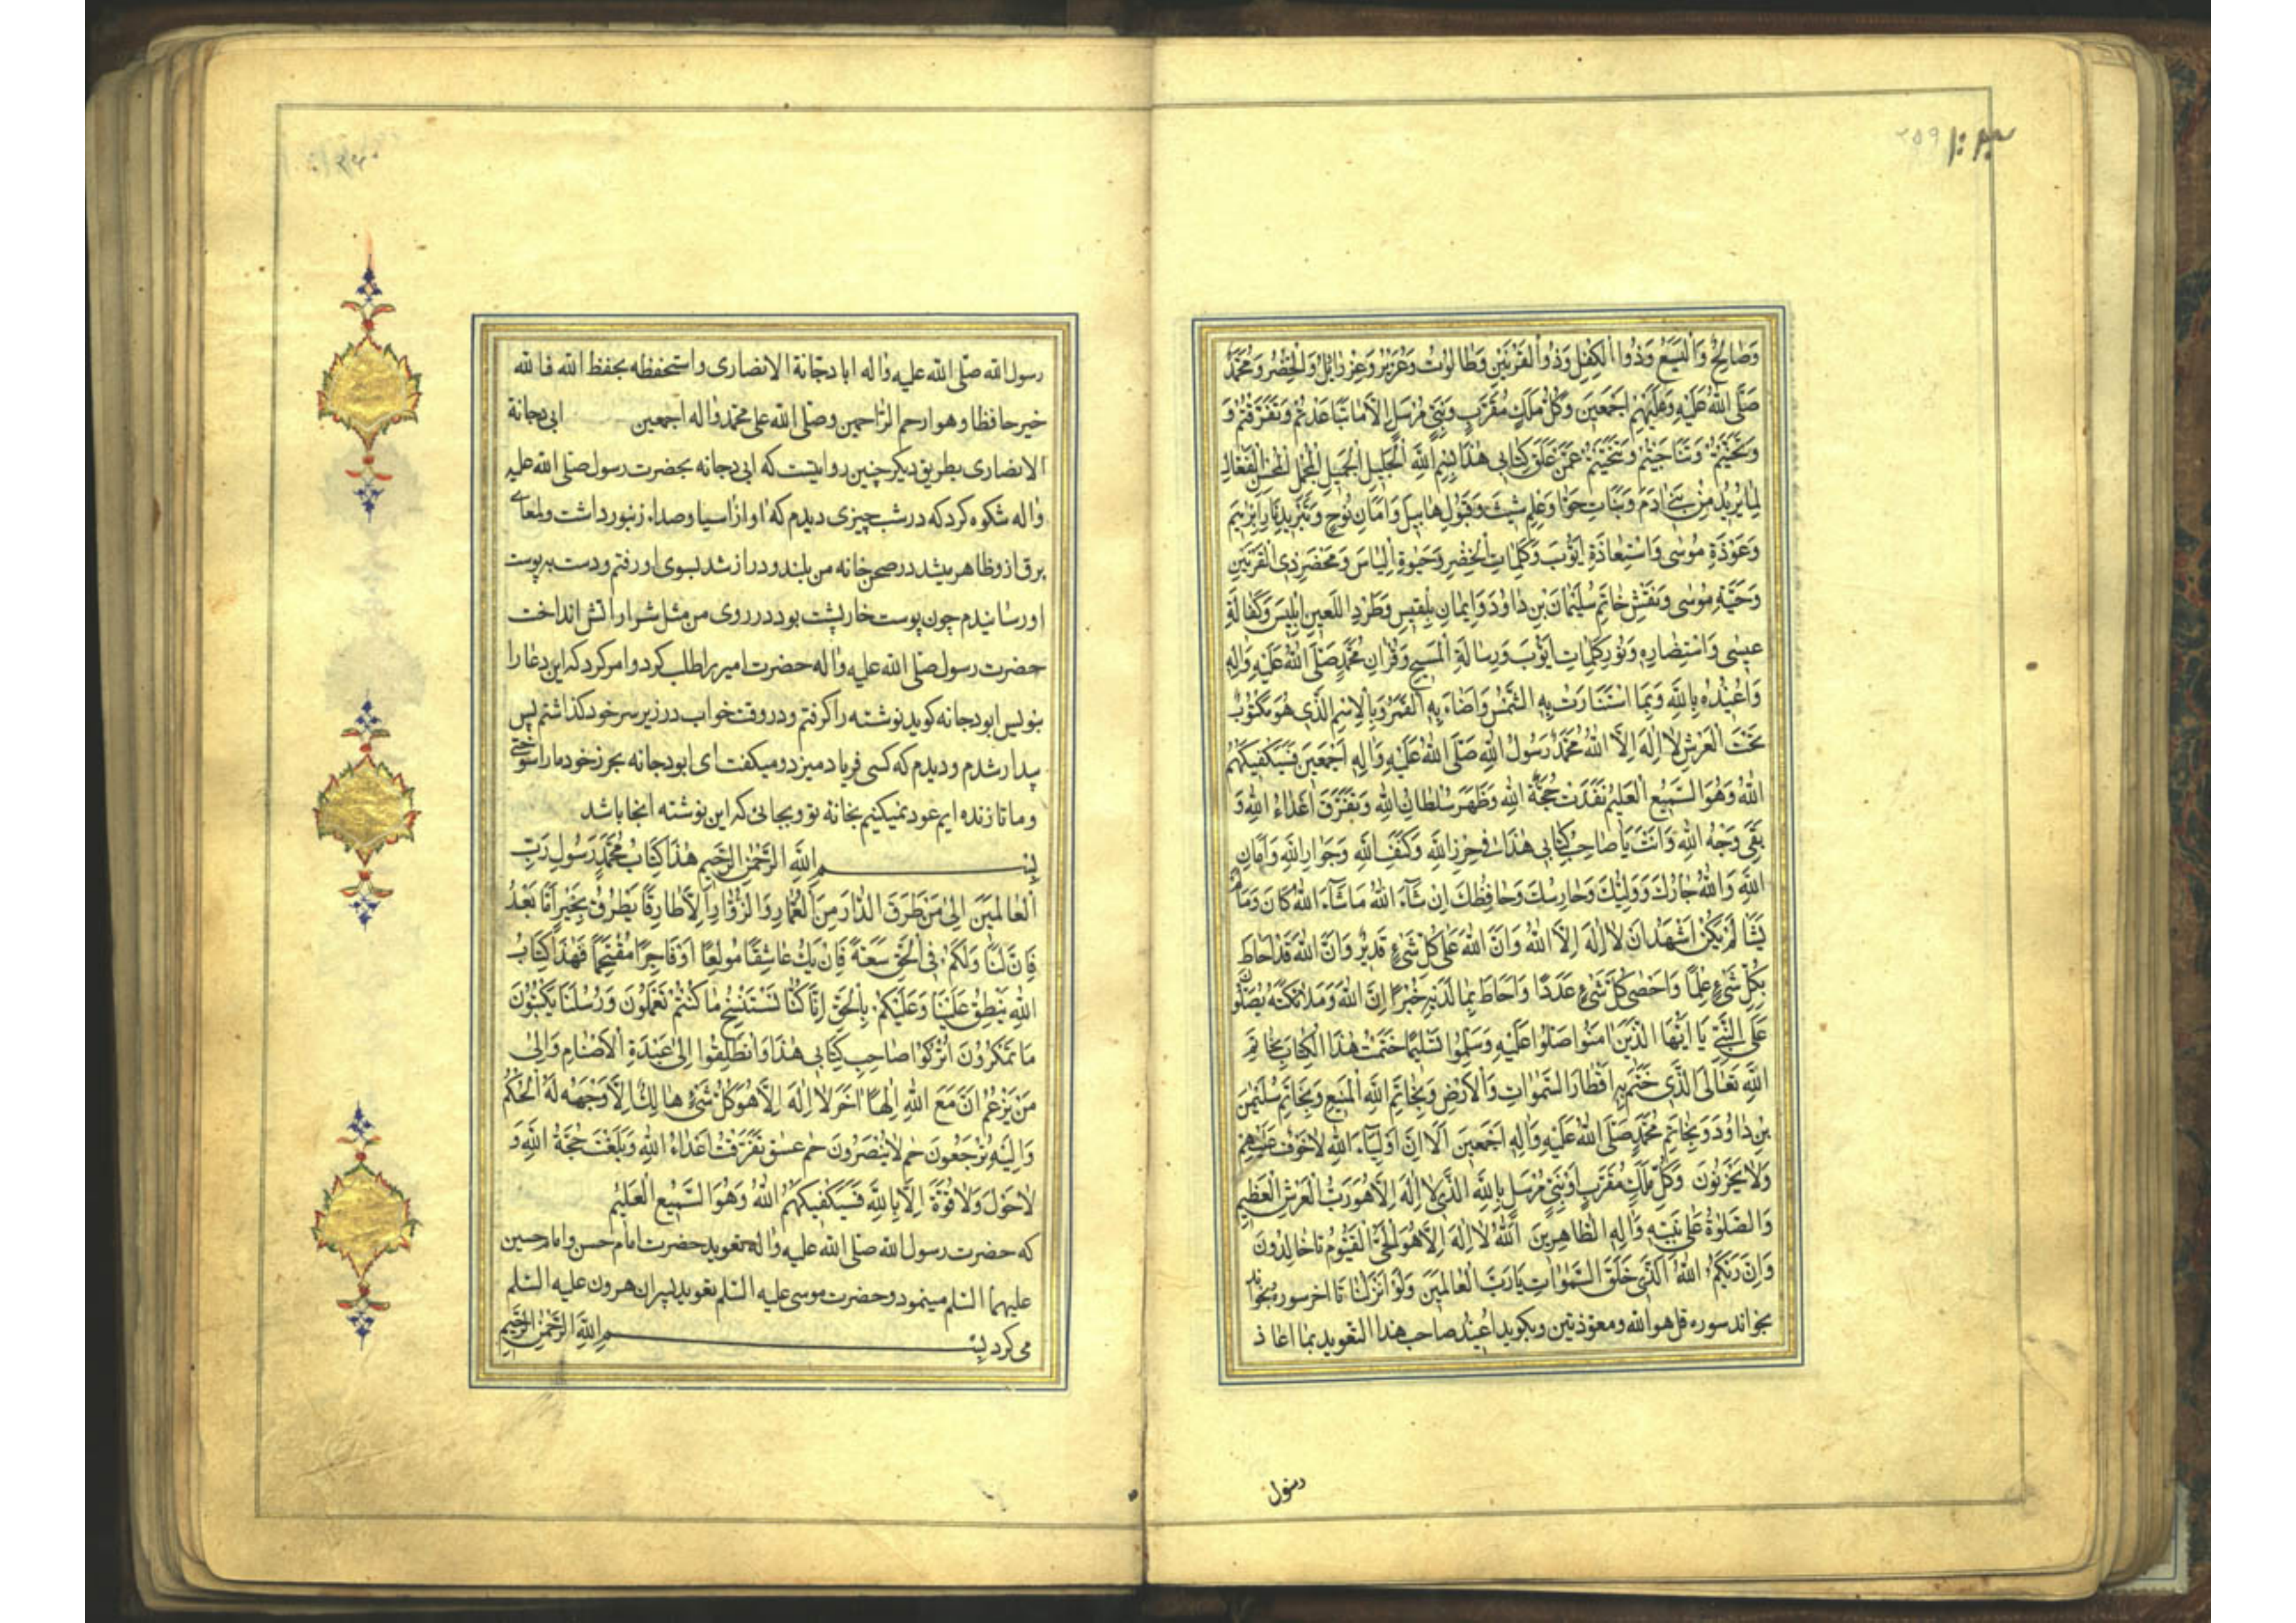 ۲۵۹
وَصٰالِحٌ وَاَلْيَسَعُ وَذُوا الْكِفْلِ وَذُوا الْقَرْنَيْنِ وَطٰالُوْتُ وَعُزَيْرُ وَعِزْرٰائِلُ وَالْخِضْرُ وَمُحَمَّدٌ
صَلَّى اللهُ عَلَيْهِ وَعَلَيْهِمْ اَجْمَعِيَن وَكُلُّ مَلَكٍ مُقَرَّبٍ وَنَبِىٍّ مُرْسَلٍ اِلّاٰ مٰا تَبٰاعَدْتُمْ وَتَفَرَّقْتُمْ وَ
وَتَنَحَّيْتُمْ عَمَّنْ عَلَّقَ كِتٰابِى هٰذٰا بِسْمِ اللهِ الْجَلِيلِ الْجَمِيلِ الْفَعّٰالِ
لِمٰا يُرِيْدُ مِنْ بَنِىٓ اٰدَمَ وَبَنٰاتِ حَوّٰا وَعِلْمِ شِيْثَ وَقَبُولِ هٰابِيلَ وَاَمٰانِ نُوْحٍ اِبْرٰهِيَم
وَعَوْذَةِ مُوسٰى وَاسْتِعٰاذَةِ اَيُّوْبَ وَكَلِمٰاتِ الْخِضْرِ وَحَيٰوةِ اِلْيٰاسَ وَمَحْضَرِ ذِى الْقَرْنَيْنِ
وَحَيَّةِ مُوْسٰى وَنَقْشِ خٰاتَمِ سُلَيْمٰانَ بْنِ دٰاوُدَ وَاِيمٰانِ بِلْقِيسَ وَطَرْدِ اللَّعِينِ اِبْلِيسَ وَكَفٰالَةِ
عِيسٰى وَنُوْرِ كَلِمٰاتِ اَيُّوْبَ وَرِسٰالَةِ الْمَسِيحِ وَقُرْاٰنِ مُحَمَّدٍ صَلَّى اللهُ عَلَيْهِ وَاٰلِهِ
وَاُعِيْذُهُ بِاللهِ وَبِمَا اسْتَنٰارَتْ بِهِ الشَّمْسُ وَاَضٰاءَ بِهِ الْقَمَرُ وَبِالْاِسْمِ الَّذِى هُوَ مَكْتُوْبٌ
تَحْتَ الْعَرْشِ لٰا اِلٰهَ اِلَّا اللهُ مُحَمَّدٌ رَسُولُ اللهِ صَلَّى اللهُ عَلَيْهِ وَاٰلِهِ اَجْمَعِينَ فَسَيَكْفِيكَهُمُ
اللهُ وَهُوَ السَّمِيعُ الْعَلِيمُ نَفَذَتْ حُجَّةُ اللهِ وَظَهَرَ سُلْطٰانُ اللهِ وَتَفَرَّقَ اَعْدٰاءُ اللهِ وَ
بَقِىَ وَجْهُ اللهِ وَاَنْتَ يٰا صٰاحِبَ كِتٰابِى هٰذٰا فِى حِرْزِ اللهِ وَكَنَفِ اللهِ وَجِوٰارِ اللهِ وَاَمٰانِ
اللهِ وَاللهُ جٰارُكَ وَوَلِيُّكَ وَحٰارِسُكَ وَحٰافِظُكَ اِنْ شٰآءَ اللهُ مٰا شٰآءَ اللهُ كٰانَ وَمٰا لَمْ
يَشَأْ لَمْ يَكُنْ اَشْهَدُ اَنْ لٰا اِلٰهَ اِلَّا اللهُ وَاَنَّ اللهَ عَلٰى كُلِّ شَىْءٍ قَدِيْرٌ وَاَنَّ اللهَ قَدْ اَحٰاطَ
بِكُلِّ شَىْءٍ عِلْمًا وَاَحْصٰى كُلَّ شَىْءٍ عَدَدًا وَاَحٰاطَ بِمٰا لَدَيْهِ خُبْرًا اِنَّ اللهَ وَمَلٰائِكَتَهُ يُصَلُّونَ
عَلَى النَّبِىِّ يٰا اَيُّهَا الَّذِيْنَ اٰمَنُوا صَلُّوا عَلَيْهِ وَسَلِّمُوا تَسْلِيمًا خَتَمْتُ هٰذَا الْكِتٰابَ بِخٰاتَمِ
اللهِ تَعٰالَى الَّذِى خَتَمَ بِهِ اَقْطٰارَ السَّمٰوٰاتِ وَالْاَرْضِ وَبِخٰاتَمِ اللهِ الْمَنِيعِ وَبِخٰاتَمِ سُلَيْمٰنَ
بْنِ دٰاوُدَ وَبِخٰاتَمِ مُحَمَّدٍ صَلَّى اللهُ عَلَيْهِ وَاٰلِهِ اَجْمَعِينَ اَلٰا اِنَّ اَوْلِيٰآءَ اللهِ لٰا خَوْفٌ عَلَيْهِمْ
وَلٰا يَحْزَنُونَ وَكُلِّ مَلَكٍ مُقَرَّبٍ اَوْ نَبِىٍّ مُرْسَلٍ بِاللهِ الَّذِى لٰا اِلٰهَ اِلّٰا هُوَ رَبُّ الْعَرْشِ الْعَظِيمِ
وَالصَّلٰوةُ عَلٰى نَبِيِّهِ وَاٰلِهِ الطّٰاهِرِينَ اَللهُ لٰا اِلٰهَ اِلّٰا هُوَ الْحَىُّ الْقَيُّوْمُ تا خٰالِدُونَ
وَاِنَّ رَبَّكُمُ اللهُ الَّذِى خَلَقَ السَّمٰوٰاتِ يٰا رَبَّ الْعٰالَمِينَ وَلَوْ اَنْزَلْنٰا تا اخر سوره بخواند
بخواند سوره قل هو الله ومعوذتين وبكويد اُعِيْذُ صاحب هذا التعويد بما اعاذ
رسول
۲۶۰
رسول الله صلّى الله عليه واٰله ابا دجانة الانصارى واستحفظه بحفظ الله فالله
خير حافظا وهو ارحم الرّاحمين وصلّى الله على محمّد واٰله اجمعين ابى دجانة
الانصارى بطريق ديكر چنين روايتست كه ابى دجانه بحضرت رسول صلى الله عليه
واٰله شكوه كرد كه در شب چيزى ديدم كه اواز اسيا وصداء زنبور داشت ولمعاى
برق ازو ظاهر ميشد در صحن خانه من بلند ودراز شد بسوى او رفتم ودست بر پوست
او رسانيدم چون پوست خارپشت بود در روى من مثل شرار اتش انداخت
حضرت رسول صلّى الله عليه واٰله حضرت امير را طلب كرد وامر كرد كه اين دعا را
بنويس ابو دجانه كويد نوشته را كرفتم ودر وقت خواب در زير سر خود كذاشتم پس
بيدار شدم وديدم كه كسى فرياد ميزد وميكفت اى ابو دجانه بحرز خود ما را سوختى
وما تا زنده ايم عود نميكنيم بخانه تو وبجائى كه اين نوشته انجا باشد
بِسْمِ اللهِ الرَّحْمٰنِ الرَّحِيمِ هٰذٰا كِتٰابُ مُحَمَّدٍ رَسُولِ رَبِّ
الْعٰالَمِيَن اِلٰى مَنْ طَرَقَ الدّٰارَ مِنَ الْعُمّٰارِ وَالزُّوّٰارِ اِلّٰا طٰارِقًا يَطْرُقُ بِخَيْرٍ اَمّٰا بَعْدُ
فَاِنَّ لَنٰا وَلَكُمْ فِى الْحَقِّ سَعَةً فَاِنْ يَكُ عٰاشِقًا مُولَعًا اَوْ فٰاجِرًا مُقْتَحِمًا فَهٰذٰا كِتٰابُ
اللهِ يَنْطِقُ عَلَيْنٰا وَعَلَيْكُمْ بِالْحَقِّ اِنّٰا كُنّٰا نَسْتَنْسِخُ مٰا كُنْتُمْ تَعْمَلُونَ وَرُسُلُنٰا يَكْتُبُونَ
مٰا تَمْكُرُونَ اُتْرُكُوا صٰاحِبَ كِتٰابِى هٰذٰا وَانْطَلِقُوا اِلٰى عَبَدَةِ الْاَصْنٰامِ وَاِلٰى
مَنْ يَزْعُمُ اَنَّ مَعَ اللهِ اِلٰهًا اٰخَرَ لٰا اِلٰهَ اِلّٰا هُوَ كُلُّ شَىْءٍ هٰالِكٌ اِلّٰا وَجْهَهُ لَهُ الْحُكْمُ
وَاِلَيْهِ تُرْجَعُونَ حم لٰا يُنْصَرُونَ حم عسق تَفَرَّقَتْ اَعْدٰاءُ اللهِ وَبَلَغَتْ حُجَّةُ اللهِ وَ
لٰا حَوْلَ وَلٰا قُوَّةَ اِلّٰا بِاللهِ فَسَيَكْفِيكَهُمُ اللهُ وَهُوَ السَّمِيعُ الْعَلِيمُ
كه حضرت رسول الله صلّى الله عليه واٰله تعويد حضرت امام حسن وامام حسين
عليهما السّلم مينمود وحضرت موسى عليه السّلم تعويد پسران هرون عليه السّلم
مى كرد بِسْمِ اللهِ الرَّحْمٰنِ الرَّحِيمِ